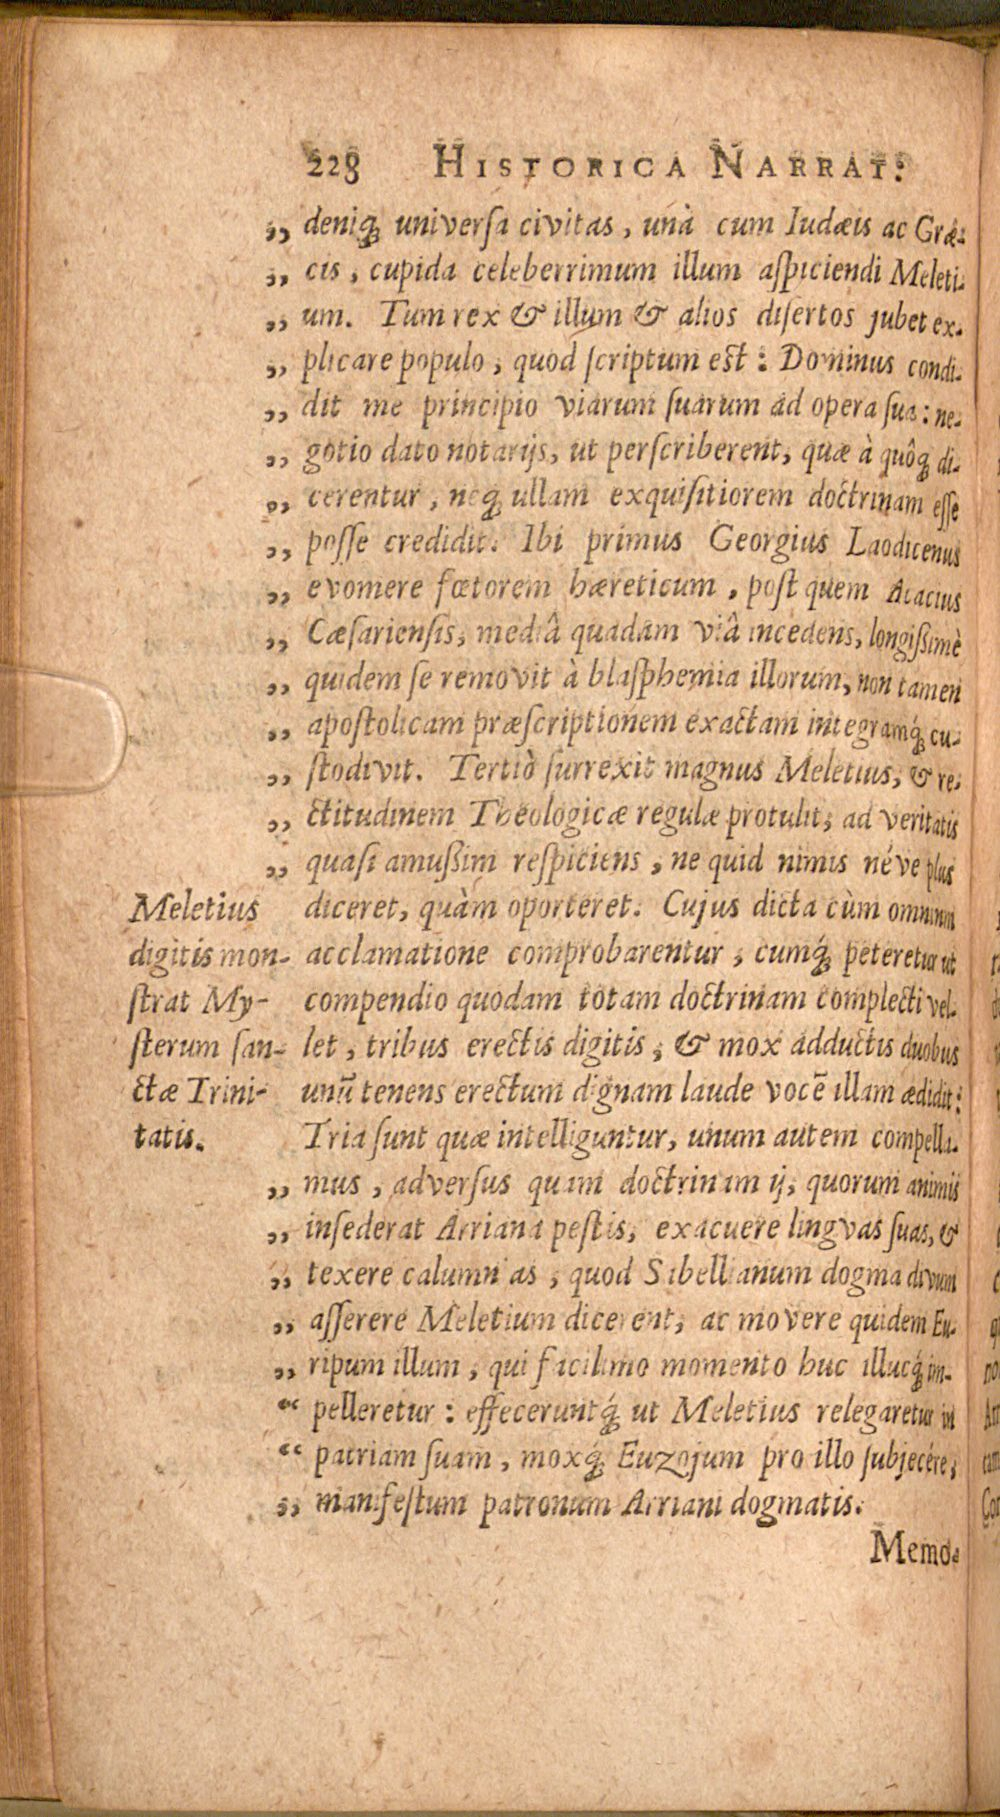 228 HISTORICA NARRAT:
„ deniq́ꝫ universa civitas, unà cum Iudæis ac Græ-
„ cis, cupida celeberrimum illum aspiciendi Meleti-
„ um. Tum rex & illum & alios disertos jubet ex-
„ plicare populo, quod scriptum est: Dominus condi-
„ dit me principio viarum suarum ad opera sua: ne-
„ gotio dato notarijs, ut perscriberent, quæ à quôqꝫ di-
„ cerentur, neqꝫ ullam exquisitiorem doctrinam esse
„ posse credidit. Ibi primus Georgius Laodicenus
„ evomere fœtorem hæreticum, post quem Acacius
„ Cæsariensis, mediâ quadam viâ incedens, longissimè
„ quidem se removit à blasphemia illorum, non tamen
„ apostolicam præscriptionem exactam integramq́ꝫ cu-
„ stodivit. Tertiò surrexit magnus Meletius, & re-
„ ctitudinem Theologicæ regulæ protulit, ad veritatis
„ quasi amussim respiciens, ne quid nimis néve plus
diceret, quàm oporteret. Cujus dicta cùm omnium
acclamatione comprobarentur, cumq́ꝫ peteretur ut
compendio quodam totam doctrinam complecti vel-
let, tribus erectis digitis, & mox adductis duobus
unũ tenens erectum dignam laude vocẽ illam ædidit:
Tria sunt quæ intelliguntur, unum autem compella-
„ mus, adversus quam doctrinam ij, quorum animis
„ insederat Arriana pestis, exacuere lingvas suas, &
„ texere calumnias, quod Sibellianum dogma divum
„ asserere Meletium dicerent, ac movere quidem Eu-
„ ripum illum, qui facilimo momento huc illucq́ꝫ im-
“ pelleretur: effeceruntq́ꝫ ut Meletius relegaretur in
“ patriam suam, moxq́ꝫ Euzojum pro illo subjecére,
„ manifestum patronum Arriani dogmatis.
Memo-
Meletius
digitis mon-
strat My-
sterum san-
ctæ Trini-
tatis.